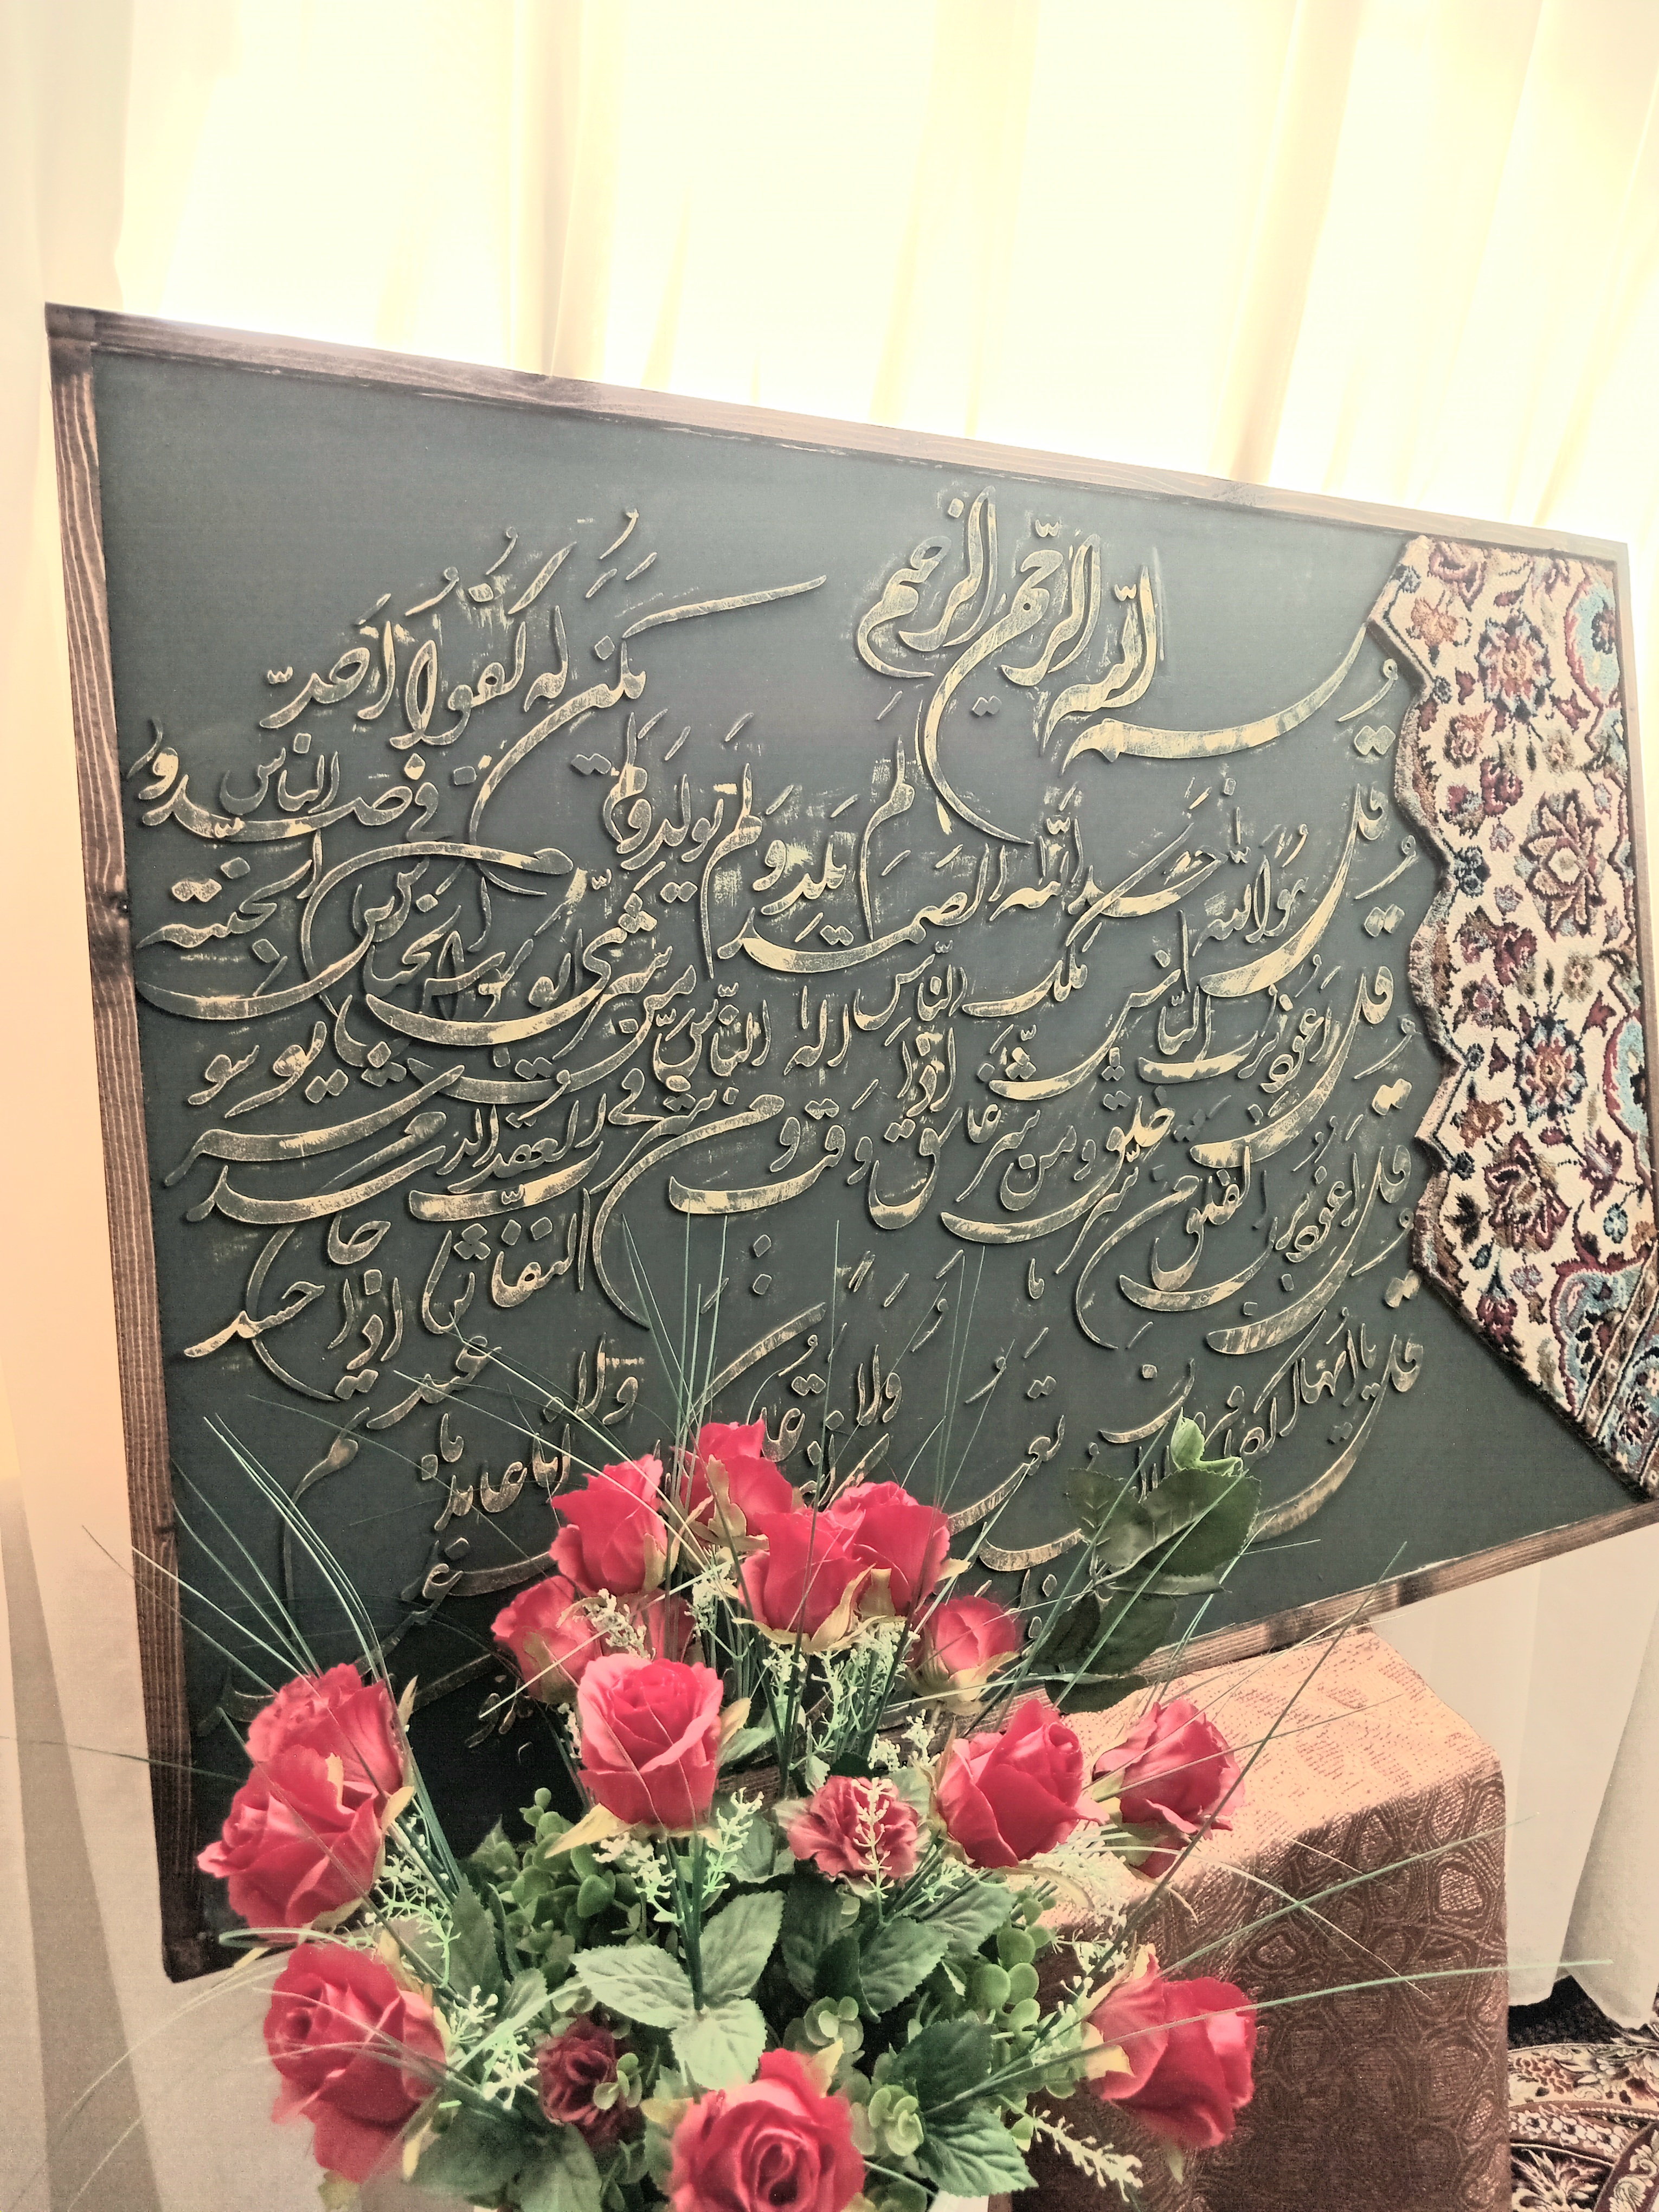 بسم الله الرحمن الرحیم
قل هو الله احد الله الصمد لم یلد و لم یولد و لم یکن له کفوا احد
قل اعوذ برب الناس ملک الناس اله الناس من شر الوسواس الخناس الذی یوسوس فی صدور الناس من الجنة
قل اعوذ برب الفلق من شر ما خلق و من شر غاسق اذا وقب و من شر النفاثات فی العقد و من شر حاسد اذا حسد
قل یا ایها الکافرون
ولا انا عابد ما عبدتم